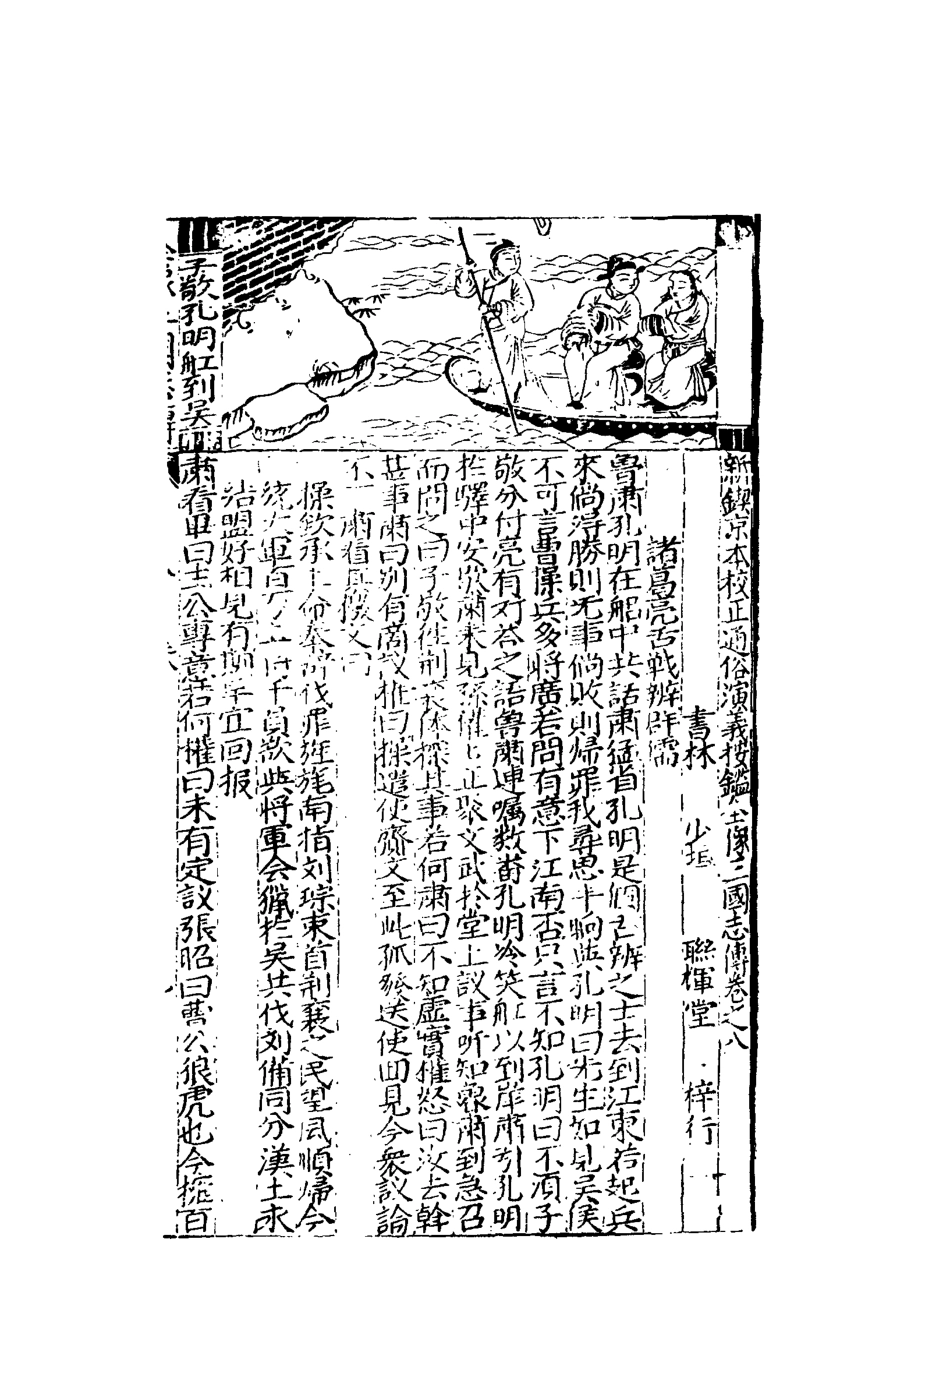 新鋟京本校正通俗演義按鑑全像三國志傳卷之八
書林 少垣 聯輝堂 梓行
諸葛亮舌戰辨群儒
魯肅孔明在船中共話肅猛省孔明是個舌辨之士去到江東若起兵
來倘淂勝則无事倘敗則歸罪我尋思半晌與孔明曰先生如見吴侯
不可言曹操兵多將廣若問有意下江南否只言不知孔明曰不須子
敬分付亮有对荅之語魯肅連嘱数畨孔明冷笑舡以到岸肅引孔明
扵驛中安歇肅来見孫權權正聚文武扵堂上議事听知魯肅到急召
而問之曰子敬徃荆襄体探其事若何肅曰不知虚實權怒曰汝去幹
甚事肅曰別有商議權曰操遣使賫文至此孤發送使囬見今衆議論
不一肅看其檄文曰
操欽承上命奉辞伐罪旌旄南指刘琮束首荆襄之民望風順歸今
統大軍百万上将千員欲與將軍会獵扵吴共伐刘備同分漢土永
洁盟好相見有期早宜回报
肅看畢曰主公專意若何權曰未有定議張昭曰曹公狼虎也今擁百
子敬孔明舡到吴